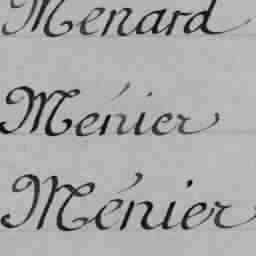 Menard
Ménier
Ménier